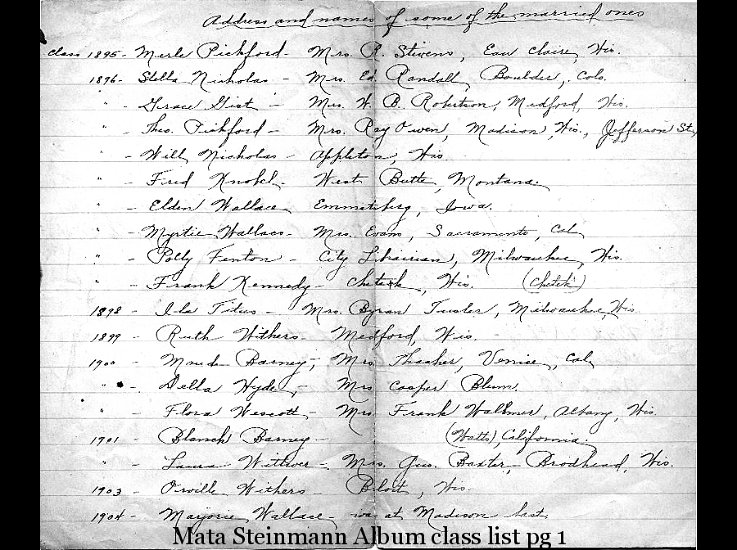 Address and names of some of the married ones
Class 1895 - Merle Pickford - Mrs. R. Stivens, Eau Claire, Wis.
1896 - Stella Nicholas - Mrs. Ed. Randall, Boulder, Colo.
" - Grace Gist - Mrs. W. B. Robertson, Medford, Wis.
" - Theo. Pickford - Mrs. Ray Owen, Madison, Wis., Jefferson St.
" - Will Nicholas - Appleton, Wis.
" - Fred - West Butte, Montana.
" - Elden Wallace, Emmetsberg, Iowa.
" - Myrtie Wallace - Mrs. Evam, Sacramento, Cal.
" - Polly Fenton - City Librarian, Milwaukee, Wis.
" - Frank Kennedy - Cheteek, Wis. (Chetek)
1898 - Ila Titus - Mrs. Byran, Milwaukee, Wis
1899 - Ruth Withers - Medford, Wis. -
1900 - Maude Barney, - Mrs. Thacher, Venice, Cal.
" - Della Hyde, - Mrs Cooper Blum.
" - Flora Wescott - Mrs. Frank, Albany, Wis.
1901 - Blanch Barney - (Watts), California.
" - Laura Wittwer - Mrs. Gus. Baxter - Brodhead, Wis.
1903 - Orville Withers - Bloit, Wis.
1904 - Marjorie Wallace - was at Madison last.
Mata Steinmann Album class list pg 1